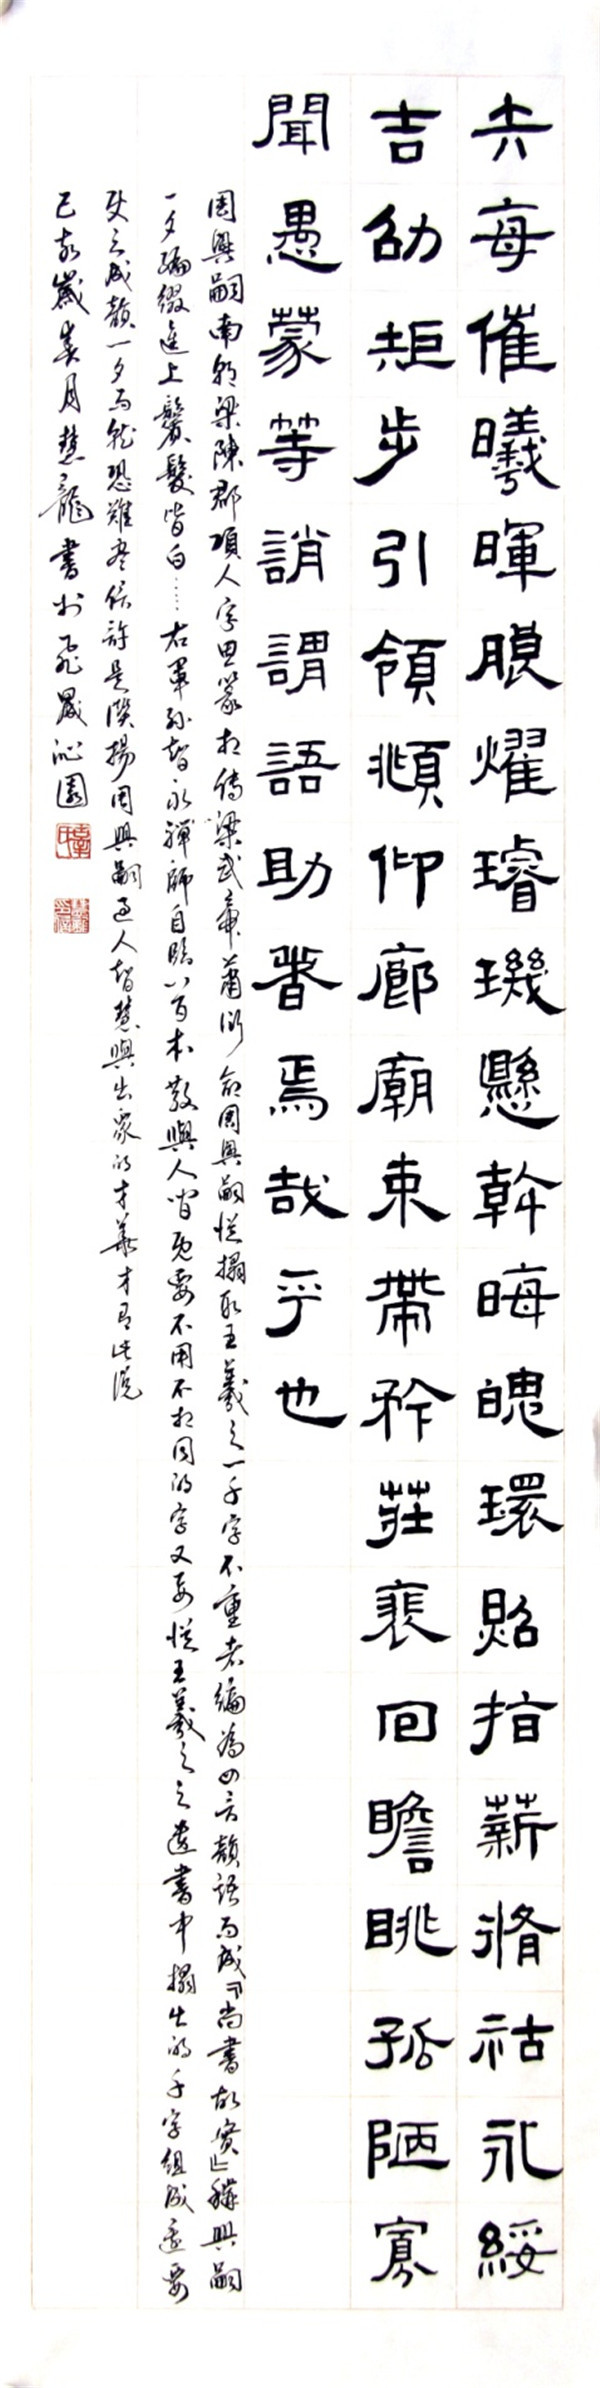 矢每催曦暉朖耀璿璣懸斡晦魄環照指薪脩祜永綏
吉劭矩步引領頫仰廊廟束帶矜莊裴回瞻眺孤陋寡
聞愚蒙等誚謂語助者焉哉乎也
周興嗣南朝梁陳郡項人字思纂相傳梁武帝蕭衍命周興嗣從搨取王羲之一千字不重者編為四言韻語而成『尚書故實』稱興嗣
一夕編綴進上鬢髮皆白……右軍孫智永禪師自臨八百本散與人間既要不用不相同的字又要從王羲之之遺書中搨出的千字組成還要
使之成韻一夕而就恐難盡信許是讚揚周興嗣過人智慧與出眾的才華才有此說
己亥歲春月慧龍書於飛晟沁園